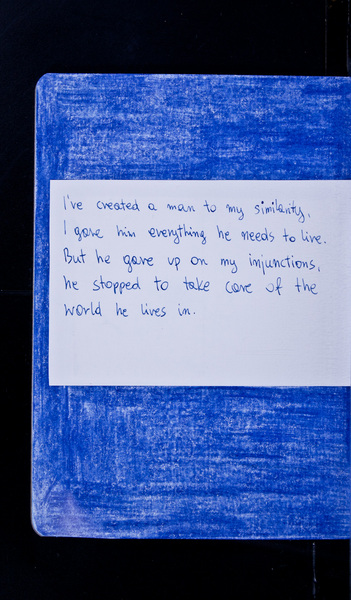 I've created a man to my similarity,
I gave him everything he needs to live.
But he gave up on my injunctions,
he stopped to take care of the
world he lives in.